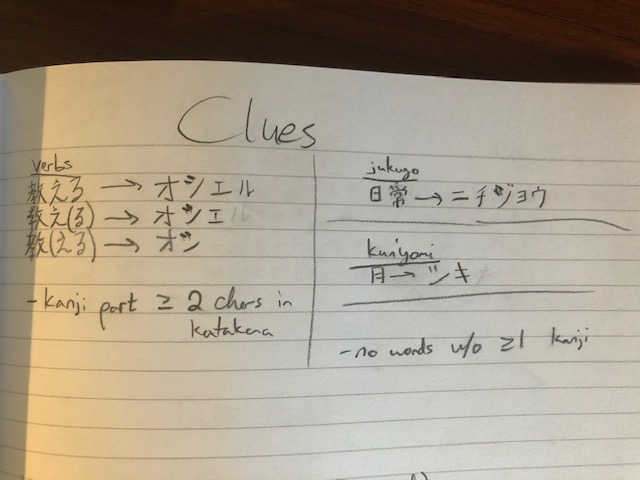 Clues
verbs
教える → オシエル
教え(る) → オシエ
教(える) → オシ
-kanji part ≥ 2 chars in
katakana
jukugo
日常 → ニチジョウ
kunyomi
月 → ツキ
-no words w/o ≥1 kanji